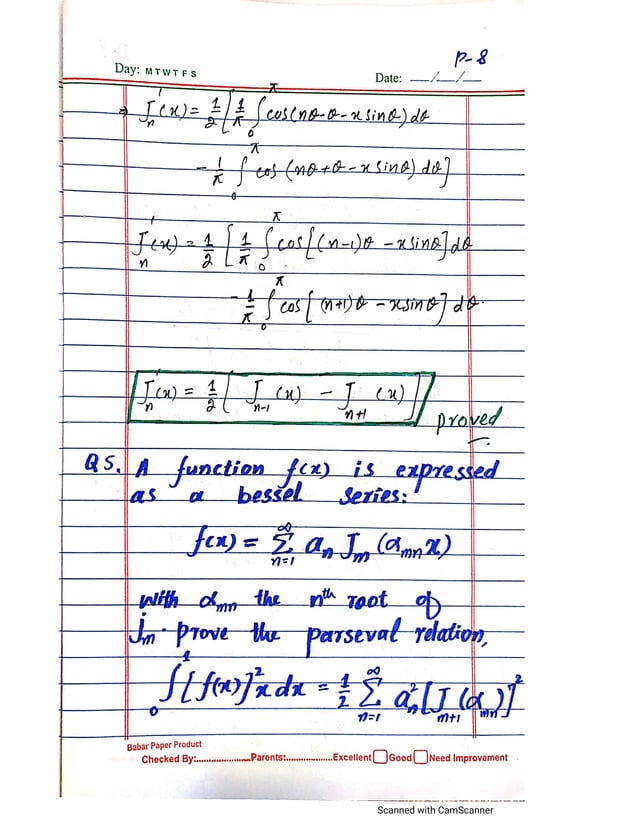 P-8
Day: M T W T F S
Date: __/__/__
⇒ J'ₙ(x) = 1/2 [ 1/π ∫₀^π cos(nθ-θ-x sinθ) dθ
- 1/π ∫₀^π cos (nθ+θ-x sinθ) dθ]
J'ₙ(x) = 1/2 [ 1/π ∫₀^π cos[(n-1)θ -x sinθ] dθ
- 1/π ∫₀^π cos[ (n+1)θ -x sinθ] dθ.
J'ₙ(x) = 1/2 [ Jₙ₋₁(x) - Jₙ₊₁(x) ]
proved
Q5. A function f(x) is expressed
as a bessel series:
f(x) = Σ_{n=1}^{∞} aₙ Jₘ (αₘₙ x)
with αₘₙ the nth root of
Jₘ. prove the parseval relation,
∫₀¹ [f(x)]² x dx = 1/2 Σ_{n=1}^{∞} aₙ² [Jₘ₊₁(αₘₙ)]²
Babar Paper Product
Checked By:.....................Parents:..................Excellent Good Need Improvement
Scanned with CamScanner